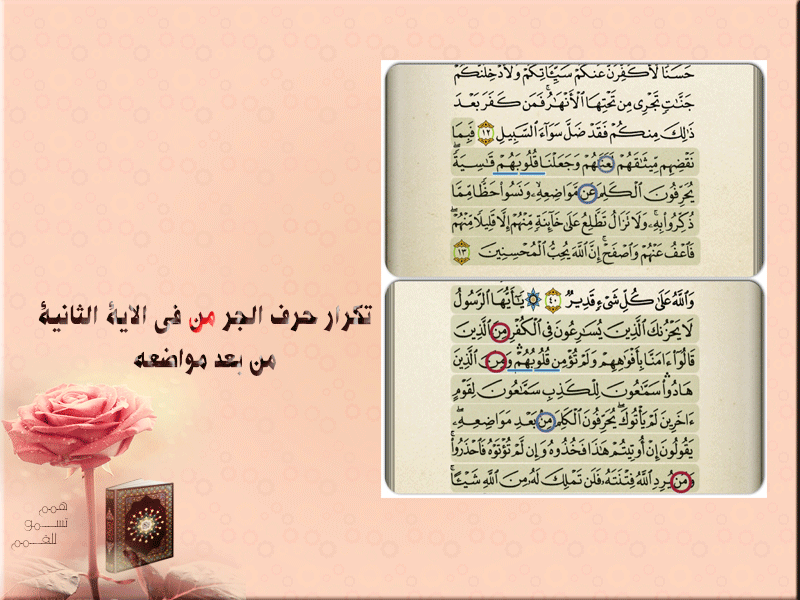 حَسَنًا لَّأُكَفِّرَنَّ عَنكُمْ سَيِّئَاتِكُمْ وَلَأُدْخِلَنَّكُمْ
جَنَّاتٍ تَجْرِي مِن تَحْتِهَا الْأَنْهَارُ فَمَن كَفَرَ بَعْدَ
ذَٰلِكَ مِنكُمْ فَقَدْ ضَلَّ سَوَاءَ السَّبِيلِ ١٢ فَبِمَا
نَقْضِهِم مِّيثَاقَهُمْ لَعَنَّاهُمْ وَجَعَلْنَا قُلُوبَهُمْ قَاسِيَةً
يُحَرِّفُونَ الْكَلِمَ عَن مَّوَاضِعِهِ وَنَسُوا حَظًّا مِّمَّا
ذُكِّرُوا بِهِ وَلَا تَزَالُ تَطَّلِعُ عَلَىٰ خَائِنَةٍ مِّنْهُمْ إِلَّا قَلِيلًا مِّنْهُمْ
فَاعْفُ عَنْهُمْ وَاصْفَحْ إِنَّ اللَّهَ يُحِبُّ الْمُحْسِنِينَ ١٣
وَاللَّهُ عَلَىٰ كُلِّ شَيْءٍ قَدِيرٌ ٤٠ يَا أَيُّهَا الرَّسُولُ
لَا يَحْزُنكَ الَّذِينَ يُسَارِعُونَ فِي الْكُفْرِ مِنَ الَّذِينَ
قَالُوا آمَنَّا بِأَفْوَاهِهِمْ وَلَمْ تُؤْمِن قُلُوبُهُمْ وَمِنَ الَّذِينَ
هَادُوا سَمَّاعُونَ لِلْكَذِبِ سَمَّاعُونَ لِقَوْمٍ
آخَرِينَ لَمْ يَأْتُوكَ يُحَرِّفُونَ الْكَلِمَ مِن بَعْدِ مَوَاضِعِهِ
يَقُولُونَ إِنْ أُوتِيتُمْ هَٰذَا فَخُذُوهُ وَإِن لَّمْ تُؤْتَوْهُ فَاحْذَرُوا
وَمَن يُرِدِ اللَّهُ فِتْنَتَهُ فَلَن تَمْلِكَ لَهُ مِنَ اللَّهِ شَيْئًا
تكرار حرف الجر من فى الاية الثانية
من بعد مواضعه
همم
تسمو
للقمم